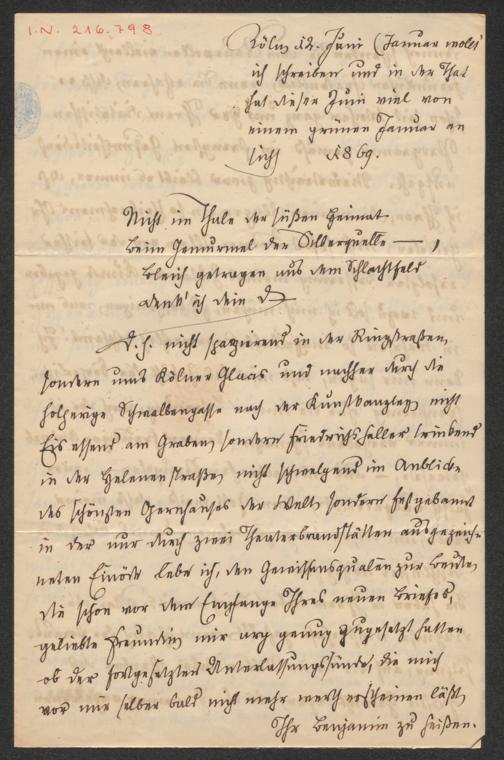 I.N. 216.798
Köln 12. Juni (Januar wollt'
ich schreiben und in der That
hat dieser Juni viel von
einem grünen Januar an
sich) 1869.
Nicht im Thale der süßen Heimat
Beim Gemurmel der Silberquelle — ,
Bleich getragen aus dem Schlachtfeld
Denk' ich dein
D. h. nicht spazierend in der Ringstraßen,
sondern ums Kölner Glacis und nachher durch die
holperige Schwalbengasse nach der Kunstkanzley, nicht
Eis essend am Graben, sondern Friedrichshaller trinkend
in der Helenenstraße, nicht schwelgend im Anblick
des schönsten Opernhauses der Welt, sondern festgebannt
in der nur durch zwei Theaterbrandstätten ausgezeich-
neten Einöde lebe ich, den Gewissensqualen zur Beute,
die schon vor dem Empfange Ihres neuen Briefes,
geliebte Freundin, mir arg genug zugesetzt hatten
ob der fortgesetzten Unterlassungssünde, die mich
vor mir selber bald nicht mehr werth erscheinen läßt,
Ihr Benjamin zu heißen.